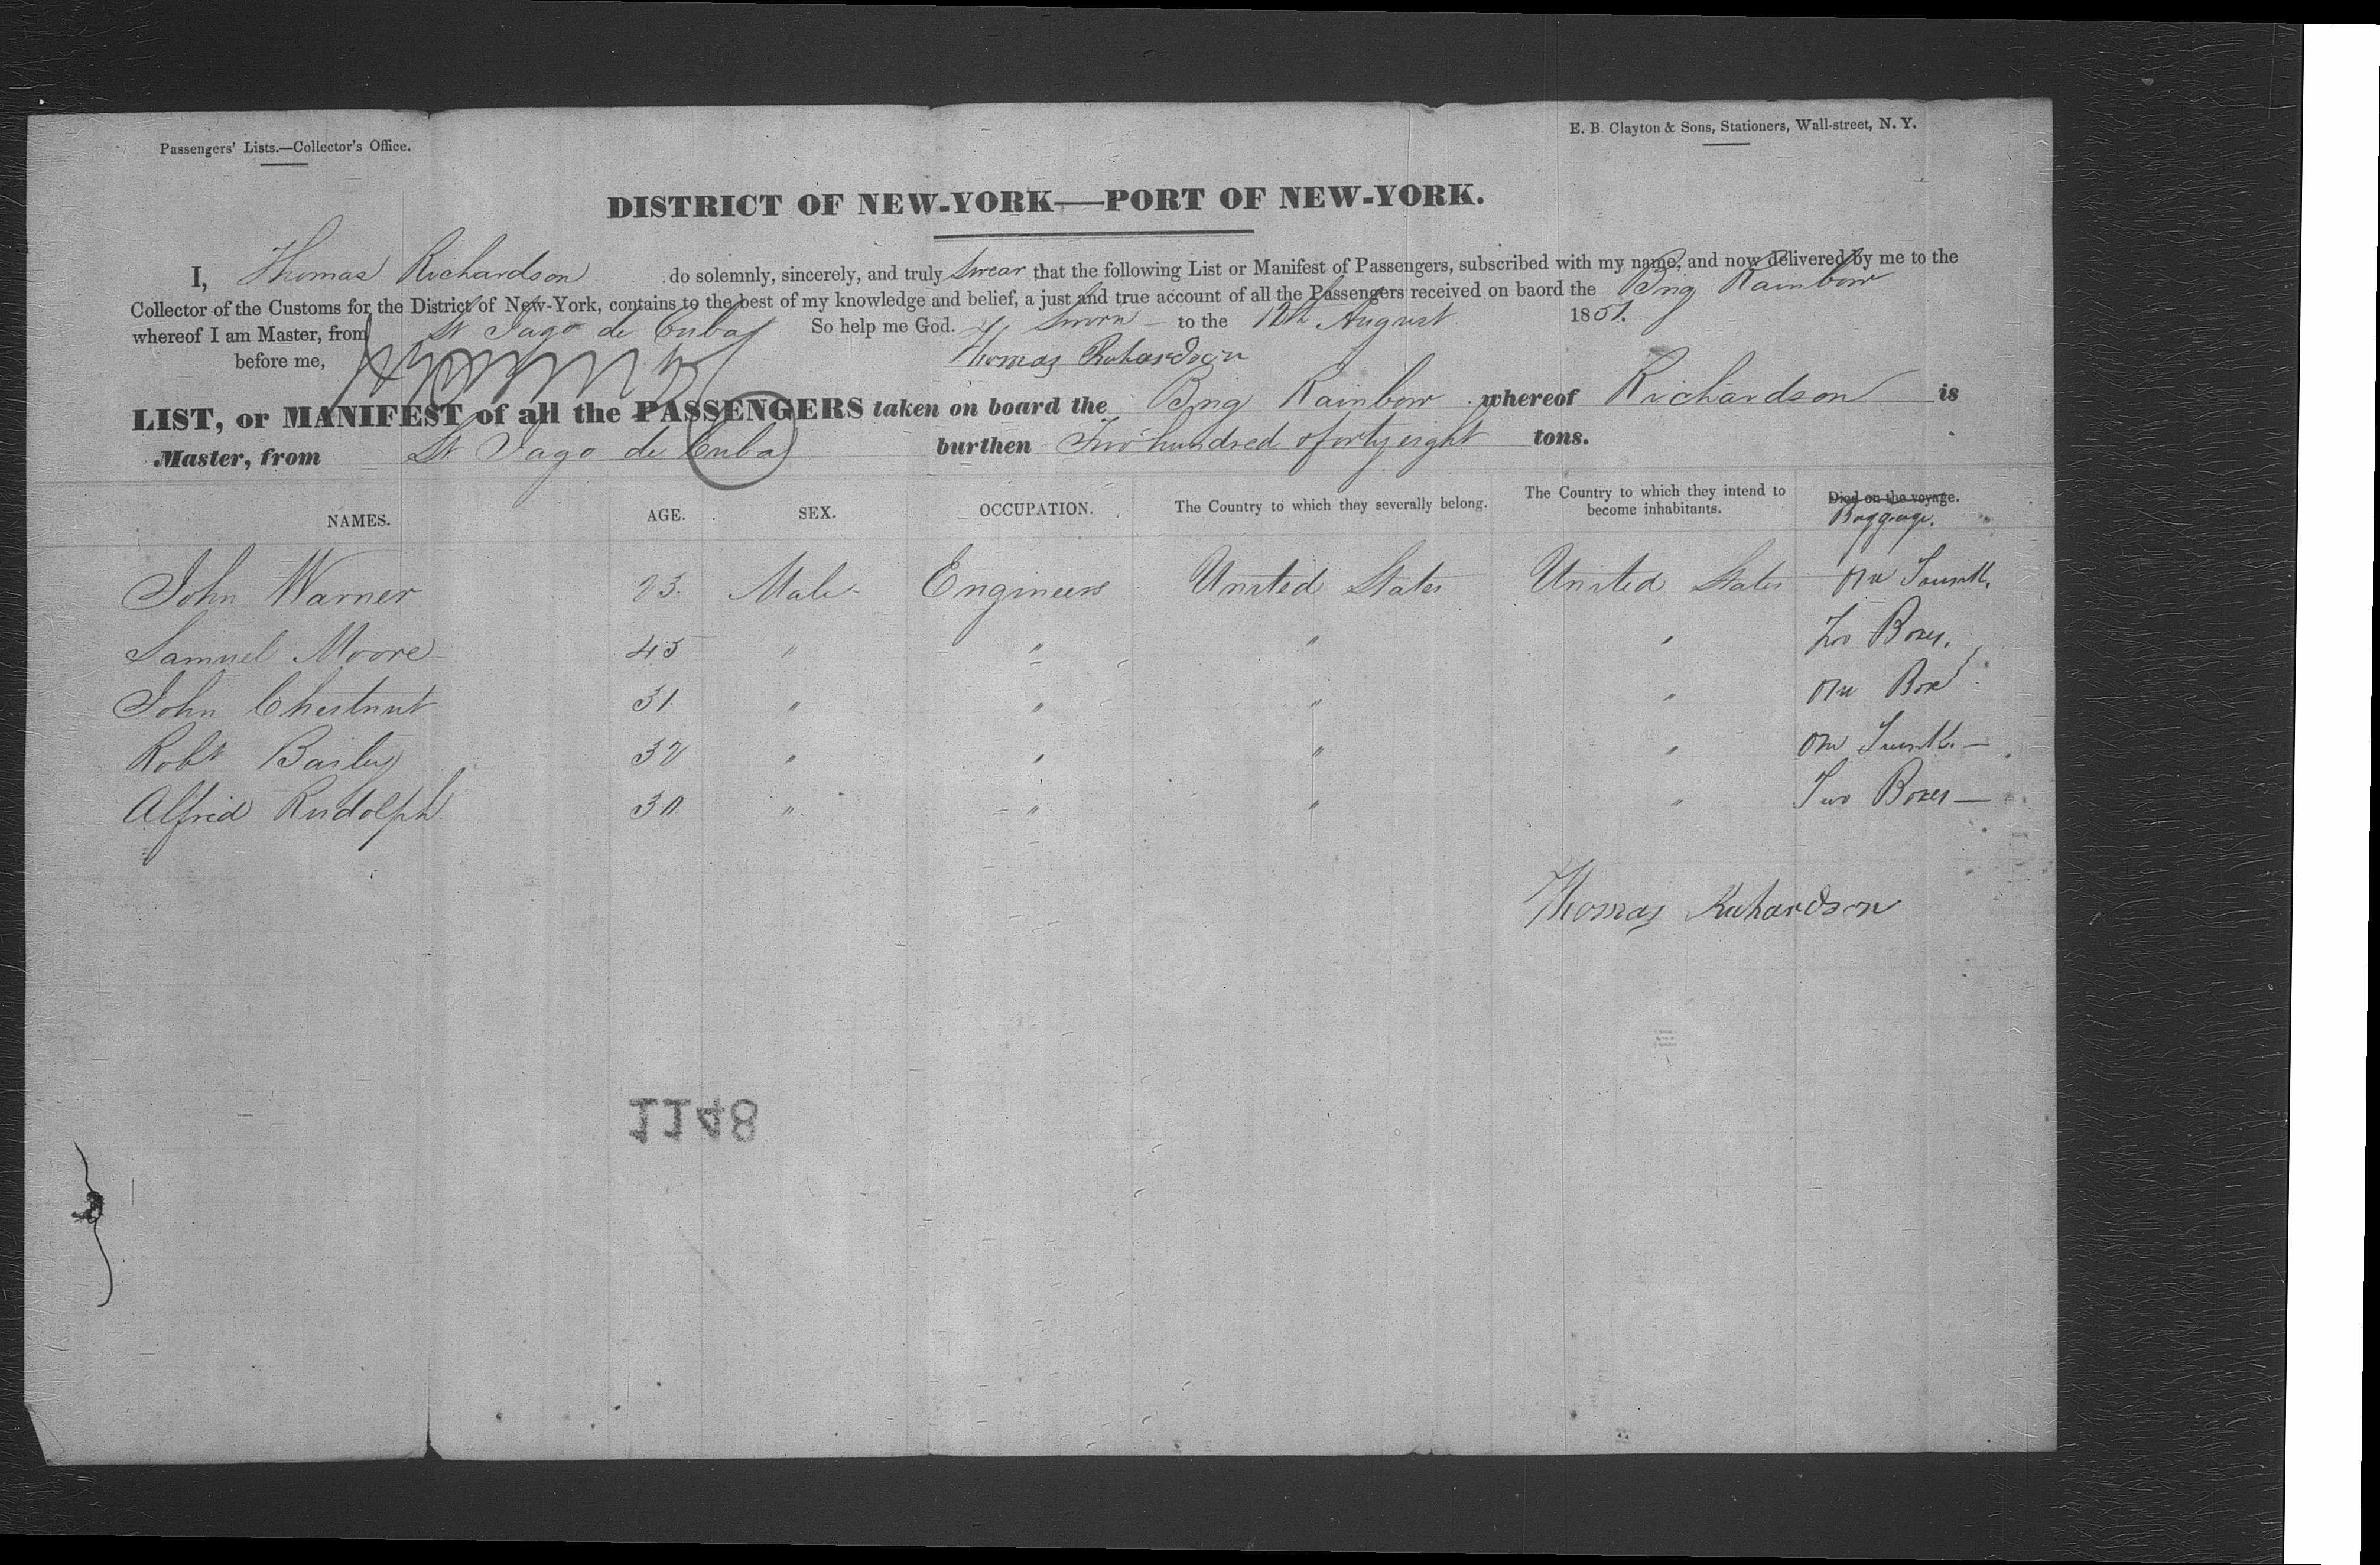 Passengers' Lists.—Collector's Office.
E. B. Clayton & Sons, Stationers, Wall-street, N. Y.
DISTRICT OF NEW-YORK—PORT OF NEW-YORK.
I, Thomas Richardson do solemnly, sincerely, and truly swear that the following List or Manifest of Passengers, subscribed with my name, and now delivered by me to the
Collector of the Customs for the District of New-York, contains to the best of my knowledge and belief, a just and true account of all the Passengers received on baord the Brig Rainbow
whereof I am Master, from St Jago de Cuba So help me God. Sworn to the 12th August 1851.
before me, Thomas Richardson
LIST, or MANIFEST of all the PASSENGERS taken on board the Brig Rainbow whereof Richardson is
Master, from St Jago de Cuba burthen Two hundred & forty eight tons.
NAMES. AGE. SEX. OCCUPATION. The Country to which they severally belong. The Country to which they intend to become inhabitants. Died on the voyage. Baggage.
John Warner 23 Male Engineers United States United States One Trunk,
Samuel Moore 45 " " " " Two Boxes,
John Chestnut 31 " " " " One Box
Robt Bailey 32 " " " " One Trunk. —
Alfred Rudolph 30 " " " " Two Boxes —
Thomas Richardson
1148